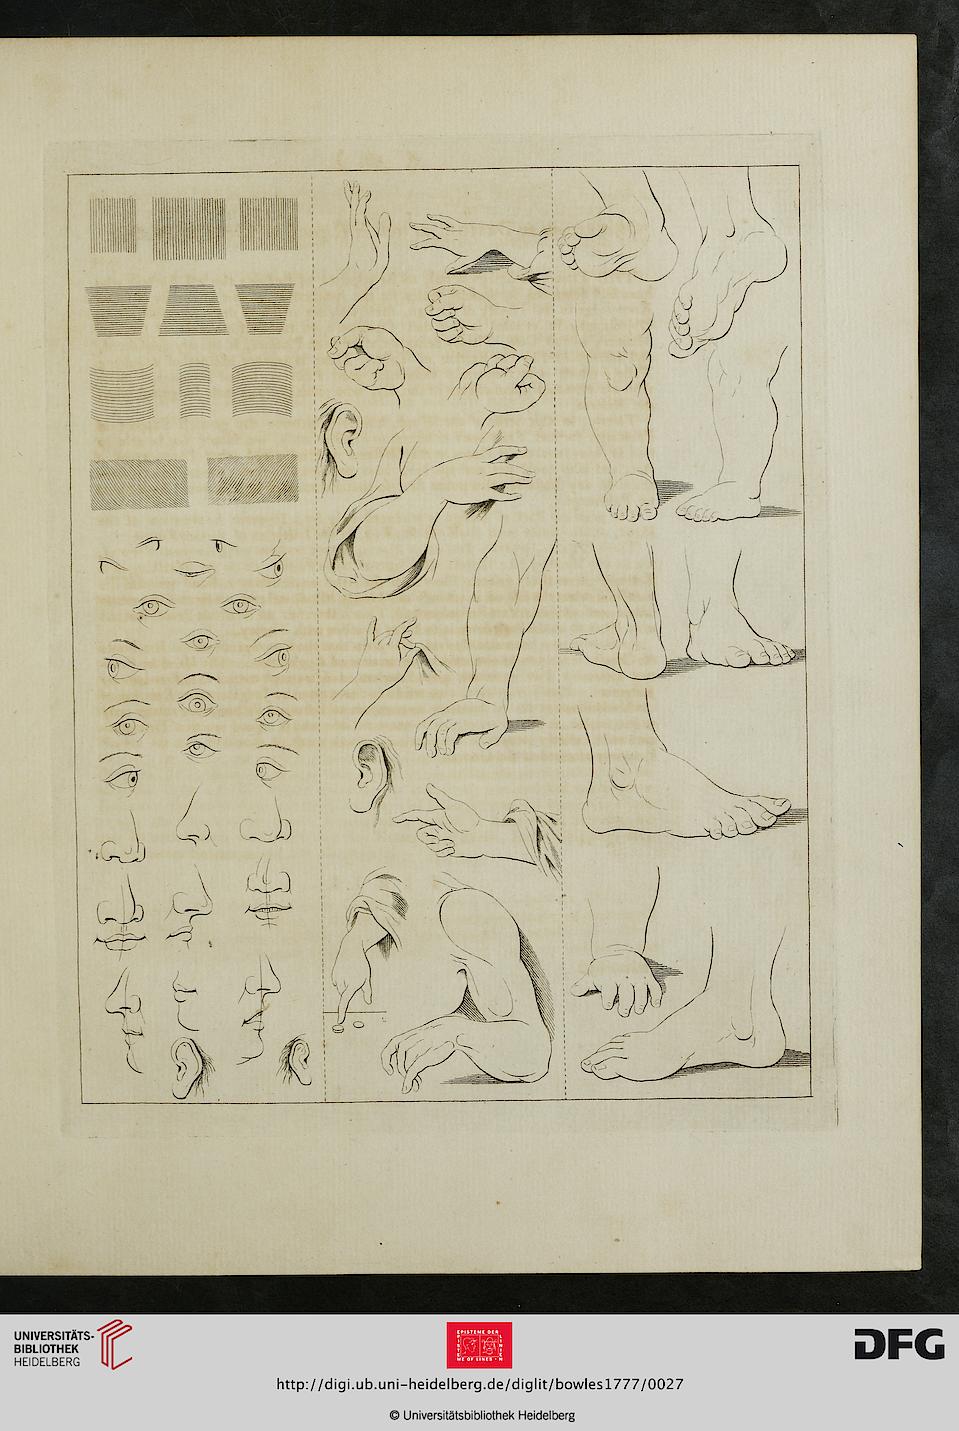 UNIVERSITÄTS-
BIBLIOTHEK
HEIDELBERG
EPISTEME DER
ME OF LINES
DFG
http://digi.ub.uni-heidelberg.de/diglit/bowles1777/0027
© Universitätsbibliothek Heidelberg